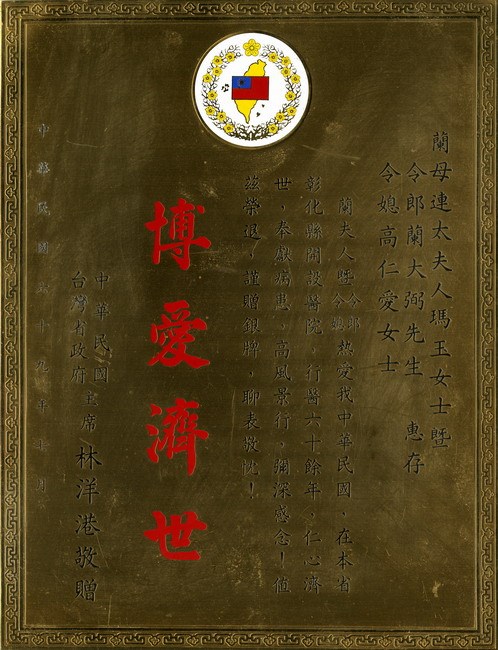 蘭母連太夫人瑪玉女士暨
令郎蘭大弼先生 惠存
令媳高仁愛女士
蘭夫人暨令郎令媳熱愛我中華民國，在本省
彰化縣開設醫院，行醫六十餘年，仁心濟
世，奉獻病患，高風景行，彌深感念！值
茲榮退，謹贈銀牌，聊表敬忱！
博愛濟世
中華民國
台灣省政府
主席 林洋港敬贈
中華民國六十九年七月